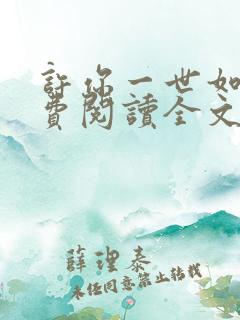 許你一世如
費閱讀全文
薛理泰
未經同意禁止轉載